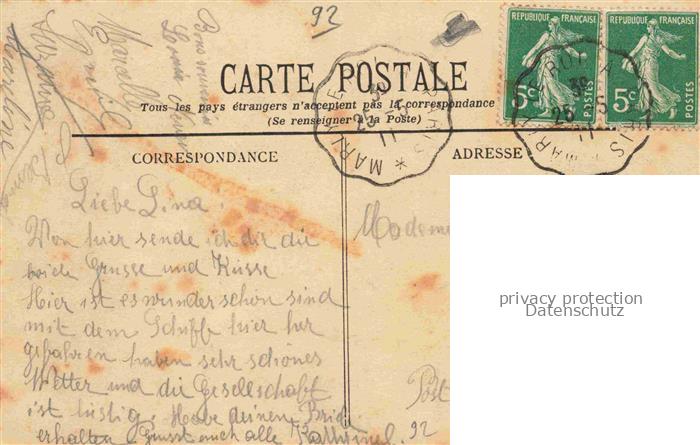 92
Bons souvenirs
Louise
Marcelle
Emile
Suzanne
Martine
CARTE POSTALE
Tous les pays étrangers n'acceptent pas la correspondance
(Se renseigner à la Poste)
CORRESPONDANCE
ADRESSE
REPUBLIQUE FRANÇAISE
5c
POSTES
REPUBLIQUE FRANÇAISE
5c
POSTES
Liebe Lina,
Von hier sende ich dir die
Grusse und Küsse
Hier ist es wunderschon sind
mit dem Schiffe hier her
gefahren haben sehr schönes
Wetter und die Gesellschaft
ist lustig. Habe deinen Brief
erhalten Grusst euch alle
Madem
Post
92
privacy protection
Datenschutz